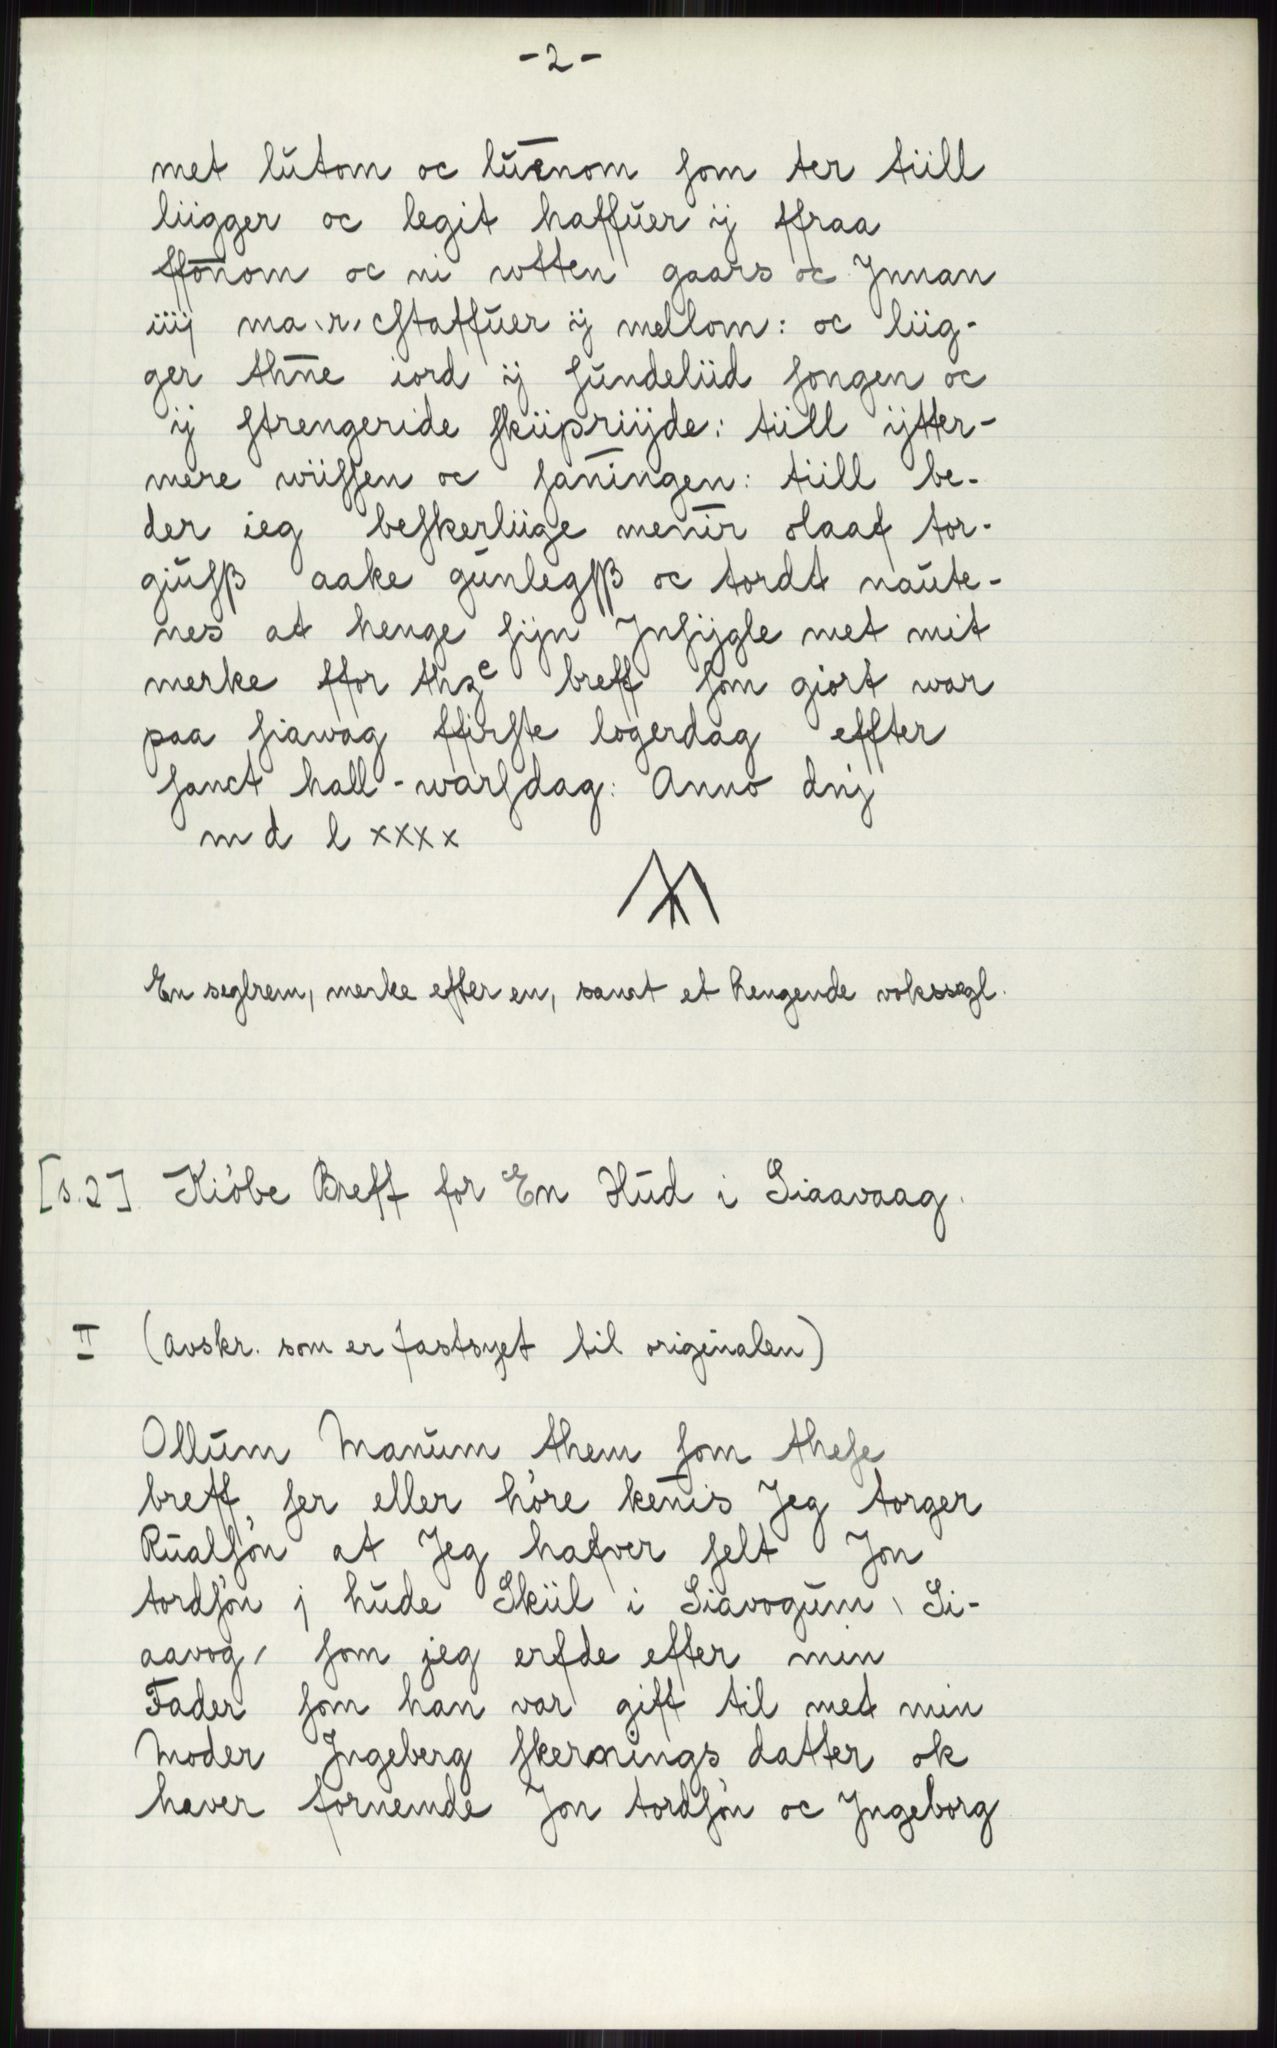 - 2 -
met lutom oc lūtnom som ter tiill
liigger oc legit haffuer ij ffraa
ffōnom oc ni wtten gaars oc Jnnan
iiij ma\r/ckstaffuer ij mellom: oc liig-
ger thn̄e iord ij sundeliid songen oc
ij strengeride skiipriijde: tiill ijtter-
mere wiissen oc sanīngen: tiill be-
der ieg beskerliige menīr olaaf tor-
giusß aake gunlegsß oc tordt naute-
nes at henge siin Jnsijgle met mit
merke ffor thzc breff som giort war
paa siawag ffirste logerdag effter
sanct hall-warsdag: Anno dnj
m d l xxxx
En seglrem, merke efter en, samt et hengende vokssegl.
[s. 2] Kiöbe Breff for En Hud i Siaavaag.
II (avskr. som er fastsyet til originalen)
Ollum Manum them som these
breff, ser eller höre kenīs Jeg torger
Rualsön at Jeg hafver selt Jon
tordsön j hude Skiil i Siavogum \ Si-
aavog / som jeg erfde efter min
Fader som han var gift til met min
Moder Jngeberg skernings datter ok
hever fornemde Jon tordsön oc Jngeborg